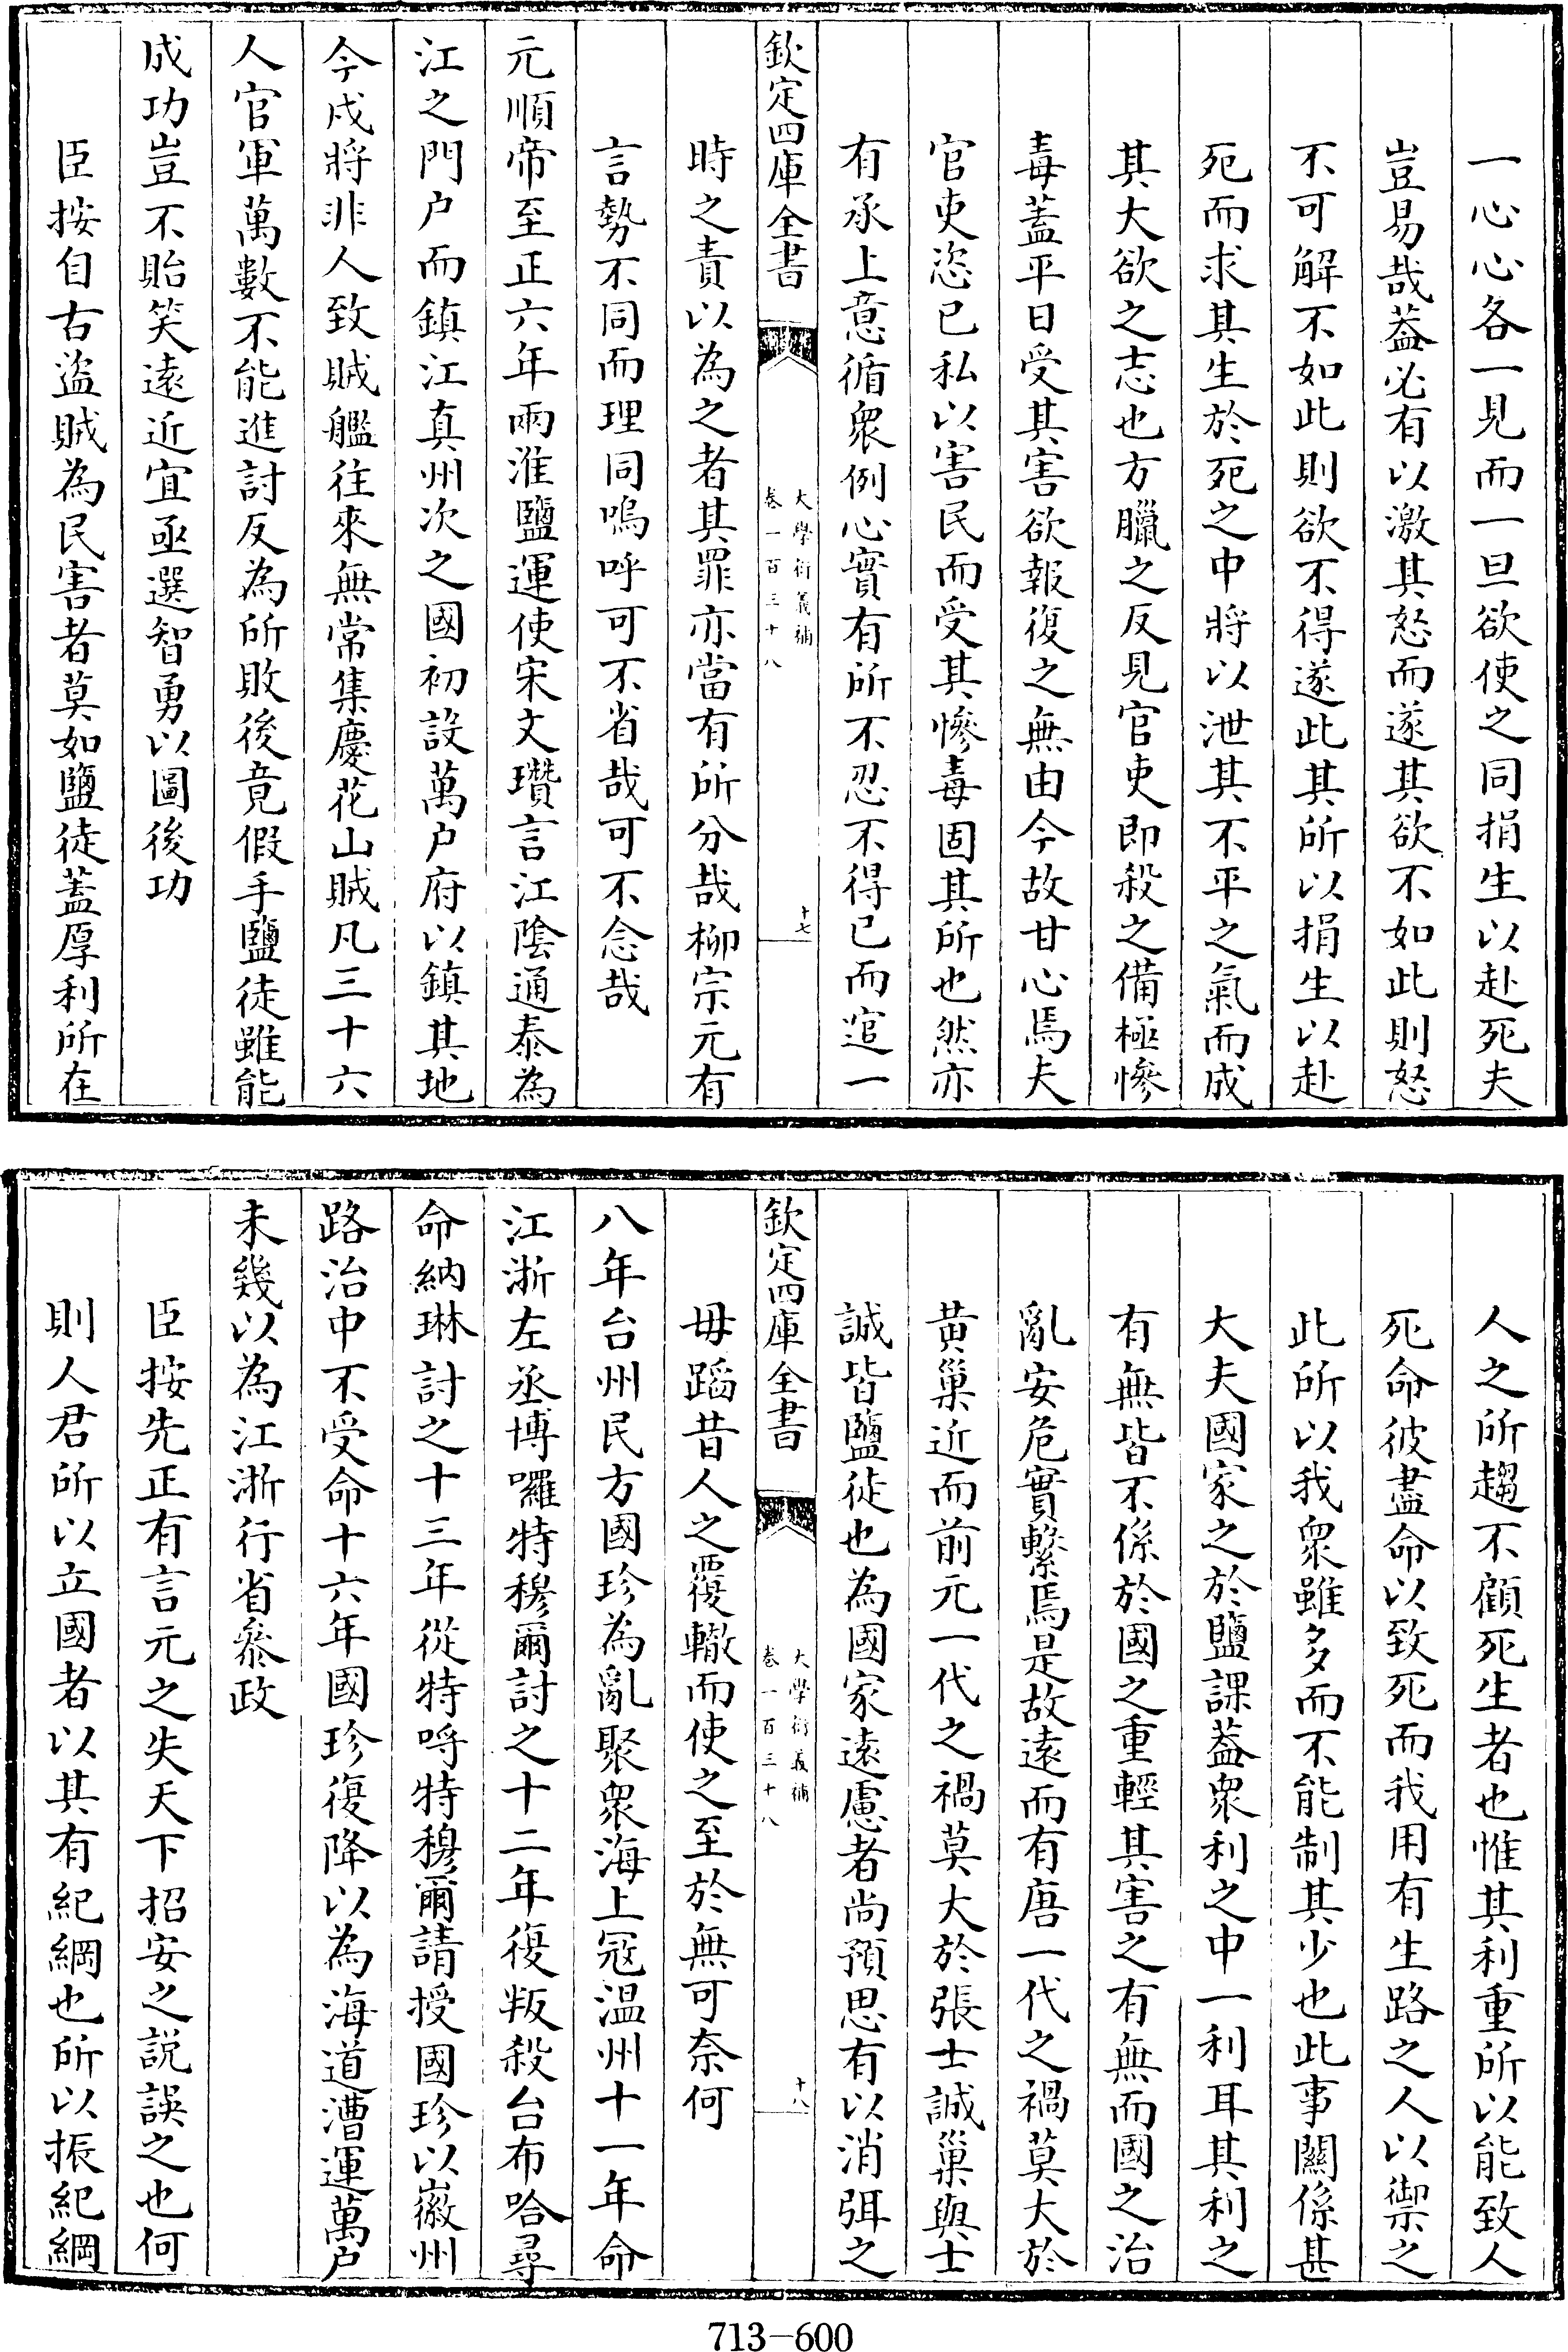 一心心各一見而一旦欲使之同捐生以赴死夫
豈易哉葢必有以激其怒而遂其欲不如此則怒
不可解不如此則欲不得遂此其所以捐生以赴
死而求其生於死之中將以泄其不平之氣而成
其大欲之志也方臘之反見官吏即殺之備極慘
毒蓋平日受其害欲報復之無由今故甘心焉夫
官吏恣已私以害民而受其慘毒固其所也然亦
有承上意循衆例心實有所不忍不得已而逭一
欽定四庫全書
大學衍義補
卷一百三十八
十七
時之責以為之者其罪亦當有所分哉柳宗元有
言勢不同而理同嗚呼可不省哉可不念哉
元順帝至正六年兩淮鹽運使宋文瓚言江陰通泰為
江之門户而鎮江真州次之國初設萬户府以鎮其地
今戍將非人致賊艦往來無常集慶花山賊凡三十六
人官軍萬數不能進討反為所敗後竟假手鹽徒雖能
成功豈不貽笑遠近宜亟選智勇以圖後功
臣按自古盜賊為民害者莫如鹽徒蓋厚利所在
人之所趨不顧死生者也惟其利重所以能致人
死命彼盡命以致死而我用有生路之人以禦之
此所以我衆雖多而不能制其少也此事關係甚
大夫國家之於鹽課葢衆利之中一利耳其利之
有無皆不係於國之重輕其害之有無而國之治
亂安危實繫焉是故遠而有唐一代之禍莫大於
黄巢近而前元一代之禍莫大於張士誠巢與士
誠皆鹽徒也為國家遠慮者尚預思有以消弭之
欽定四庫全書
大學衍義補
卷一百三十八
十八
毋蹈昔人之覆轍而使之至於無可奈何
八年台州民方國珍為亂聚衆海上冦温州十一年命
江浙左丞博囉特穆爾討之十二年復叛殺台布哈尋
命納琳討之十三年從特哷特穆爾請授國珍以徽州
路治中不受命十六年國珍復降以為海道漕運萬户
未幾以為江浙行省叅政
臣按先正有言元之失天下招安之説誤之也何
則人君所以立國者以其有紀綱也所以振紀綱
713-600